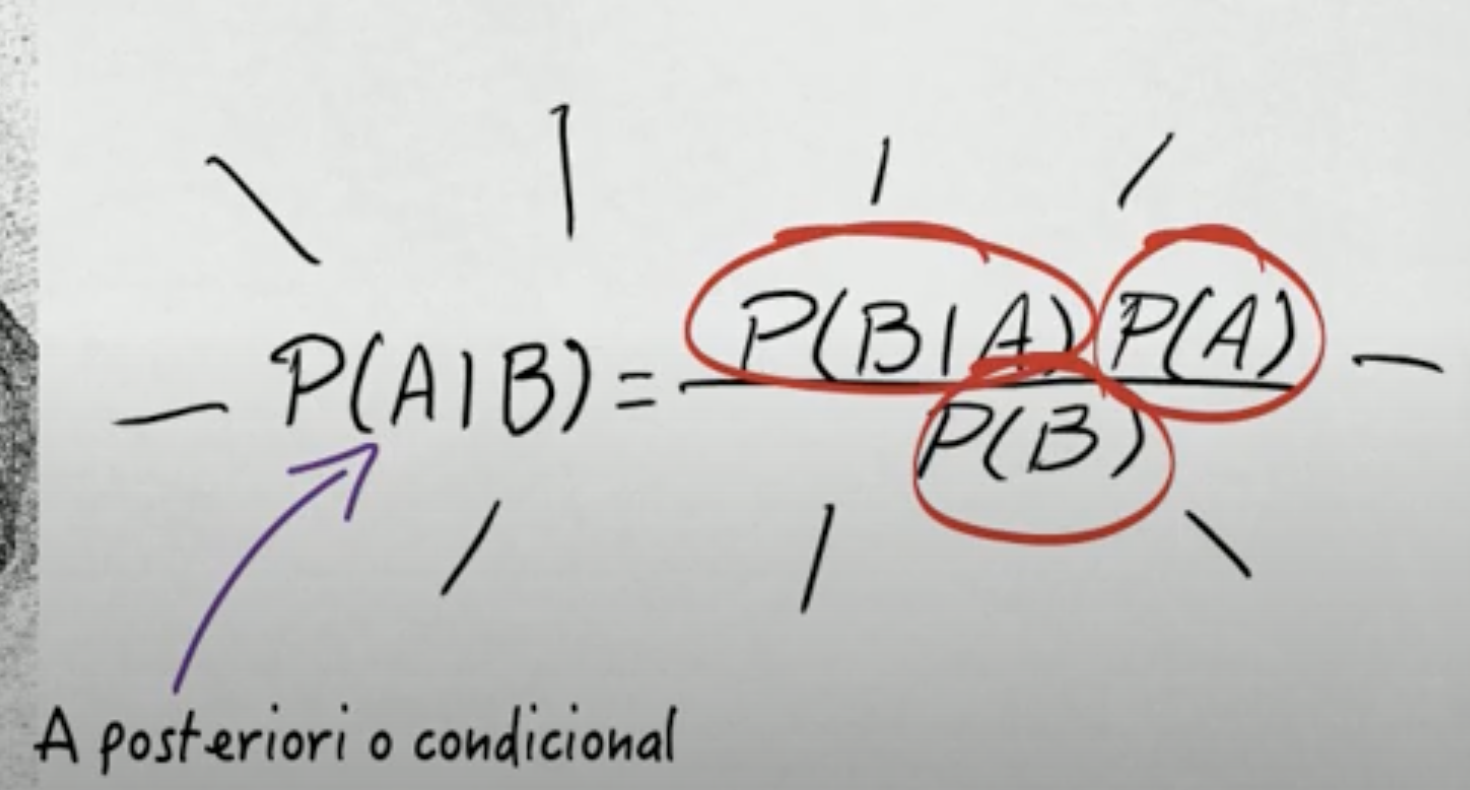 P(A|B) = P(B|A) P(A)
P(B)
A posteriori o condicional